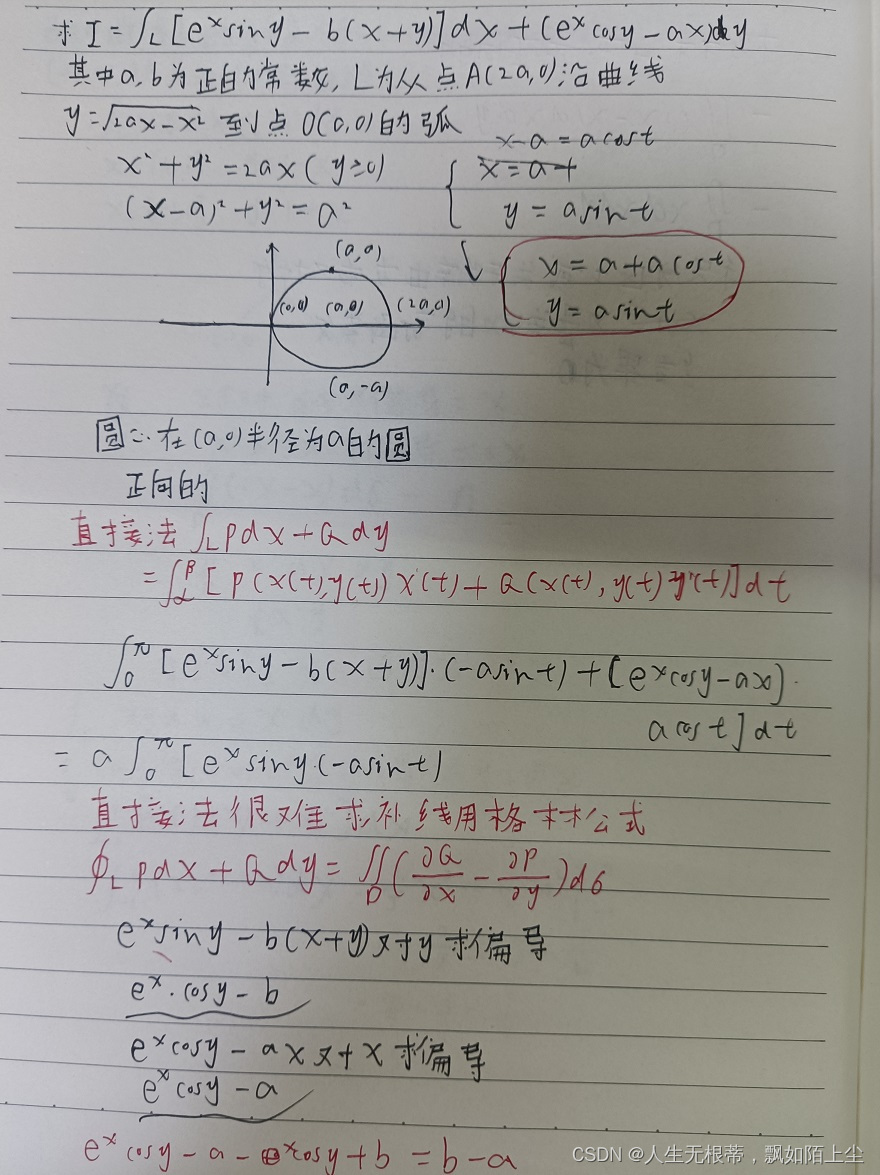 求 I = ∫_L [e^x sin y - b(x+y)] dx + (e^x cos y - ax) dy
其中a, b为正的常数, L为从点A(2a,0)沿曲线
y = √(2ax - x²) 到点 O(0,0)的弧
x² + y² = 2ax ( y≥0)
(x-a)² + y² = a²
x-a = a cos t
x = a +
y = a sin t
x = a + a cos t
y = a sin t
(a,a)
(0,0) (a,0) (2a,0)
(a,-a)
圆心在(a,0)半径为a的圆
正向的
直接法 ∫_L pdx + Qdy
= ∫_α^β [ p(x(t),y(t)) x'(t) + Q(x(t), y(t) y'(t)] dt
∫_0^π [e^x sin y - b(x+y)]·(-a sin t) + [e^x cos y - ax]·
a cos t] dt
= a ∫_0^π [e^x sin y·(-a sin t)
直接法很难求补线用格林公式
∮_L pdx + Qdy = ∬_D (∂Q/∂x - ∂P/∂y) dσ
e^x sin y - b(x+y)对y求偏导
e^x · cos y - b
e^x cos y - ax对x求偏导
e^x cos y - a
e^x cos y - a - e^x cos y + b = b - a
CSDN @人生无根蒂，飘如陌上尘